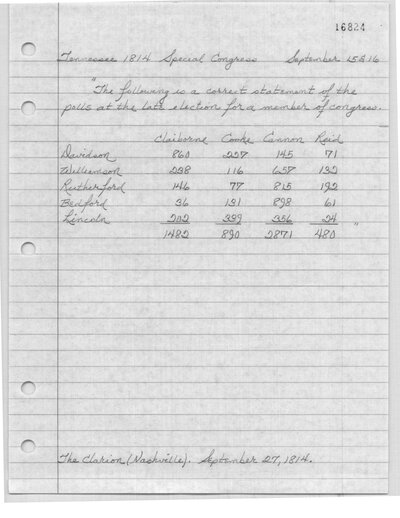 16824
Tennessee 1814 Special Congress September 15 & 16
"The following is a correct statement of the
polls at the late election for a member of congress.
Claiborne Cooke Cannon Reid
Davidson 860 227 145 71
Williamson 238 116 657 132
Rutherford 146 77 815 192
Bedford 36 131 898 61
Lincoln 202 339 356 24 "
1482 890 2871 480
The Clarion (Nashville). September 27, 1814.